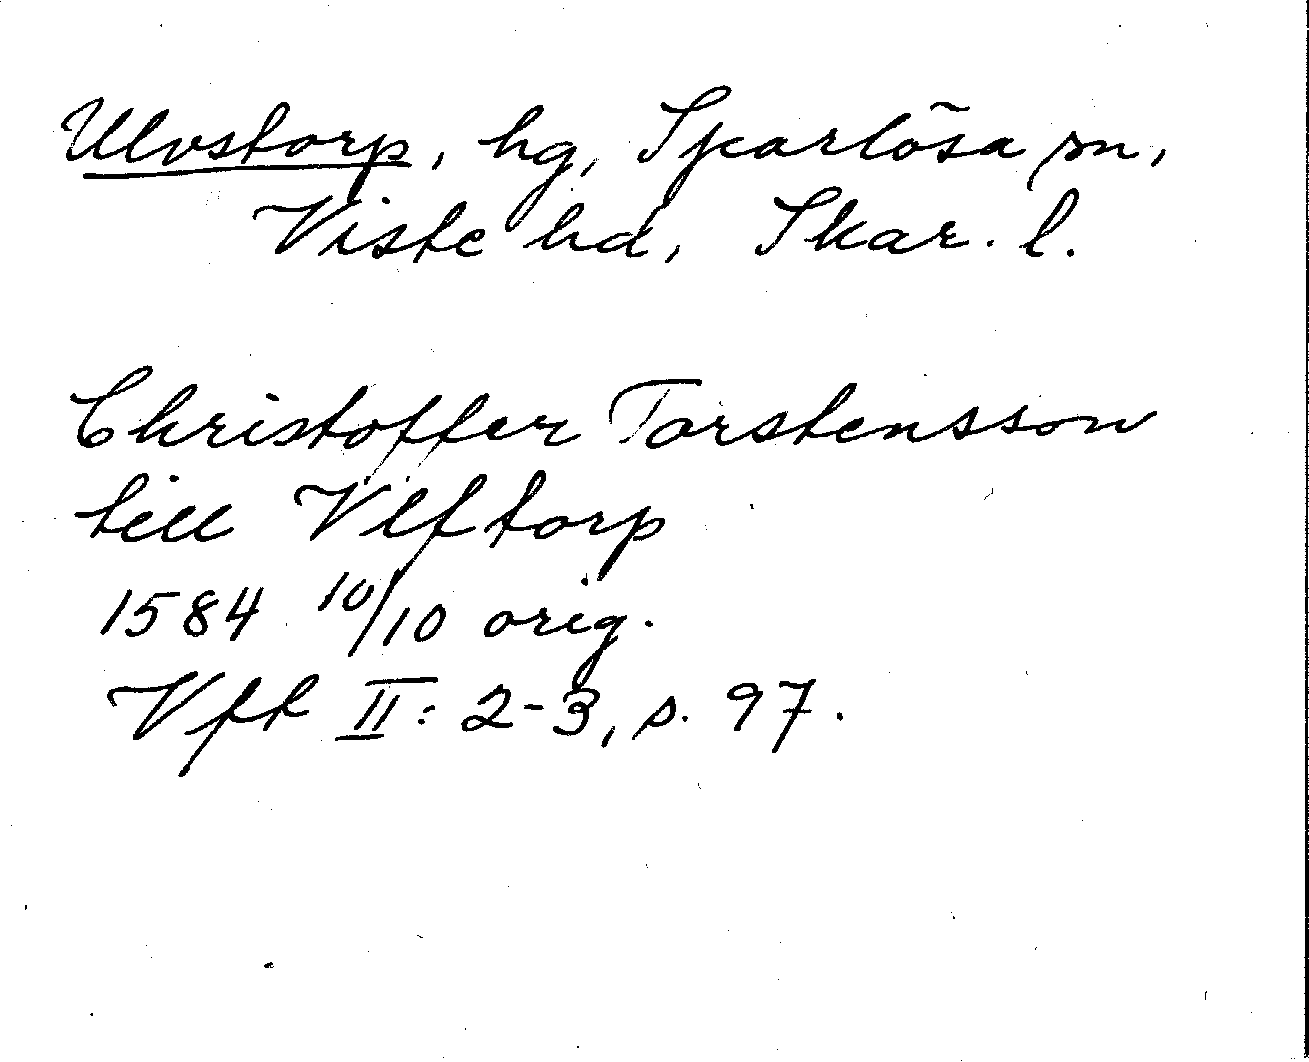 Ulvstorp, hg, Sparlösa sn,
Viste hd, Skar. l.
Christoffer Torstensson
till Vlftorp
1584 10/10 orig.
Vff II: 2-3, s. 97.